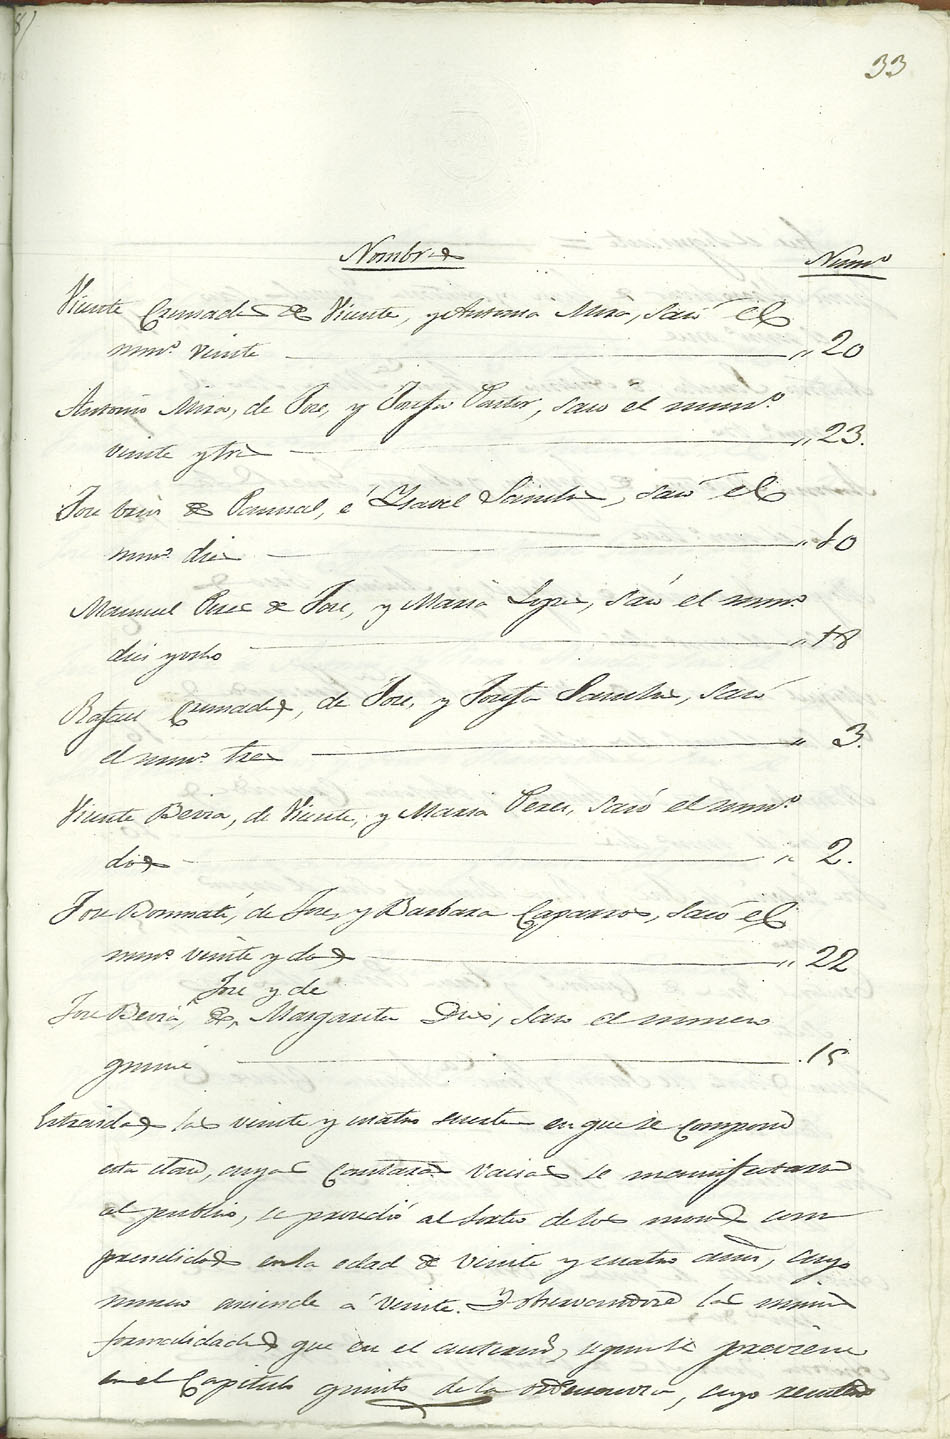 33
Nombres Numº
Vicente Cremades de Vicente, y Antonia Mira, sacó el
numº veinte „ 20
Antonio Mira, de Jose, y Josefa Pastor, saco el numº
veinte y tres „ 23.
Jose de Pascual, é Ysavel Sanches, sacó el
numº dies „ 10
Manuel Peres de Jose, y Maria Lopes, sacó el numº
dies y ocho „ 18
Rafael Cremades, de Jose, y Josefa Sanches, sacó
el numº tres „ 3.
Vicente Bevia, de Vicente, y Maria Peres, sacó el numº
dos „ 2.
Jose Bonmatí, de Jose, y Barbara Caparros, sacó el
numº veinte y dos „ 22
Jose y de
Jose Bevia, de, Margarita Dias, saco el numero
quince 15
Estraidas las veinte y cuatro suertes en que se compone
esta clase, cuyos cantaros vacios se manifestaron
al publico, se procedió al sorteo de los mosos com
prendidos en la edad de veinte y cuatro años, cuyo
numero asciende a veinte. Y observandose las mismas
formalidades que en el anterior, segun se previene
en el Capitulo quinto de la ordenansa, cuyo resultado